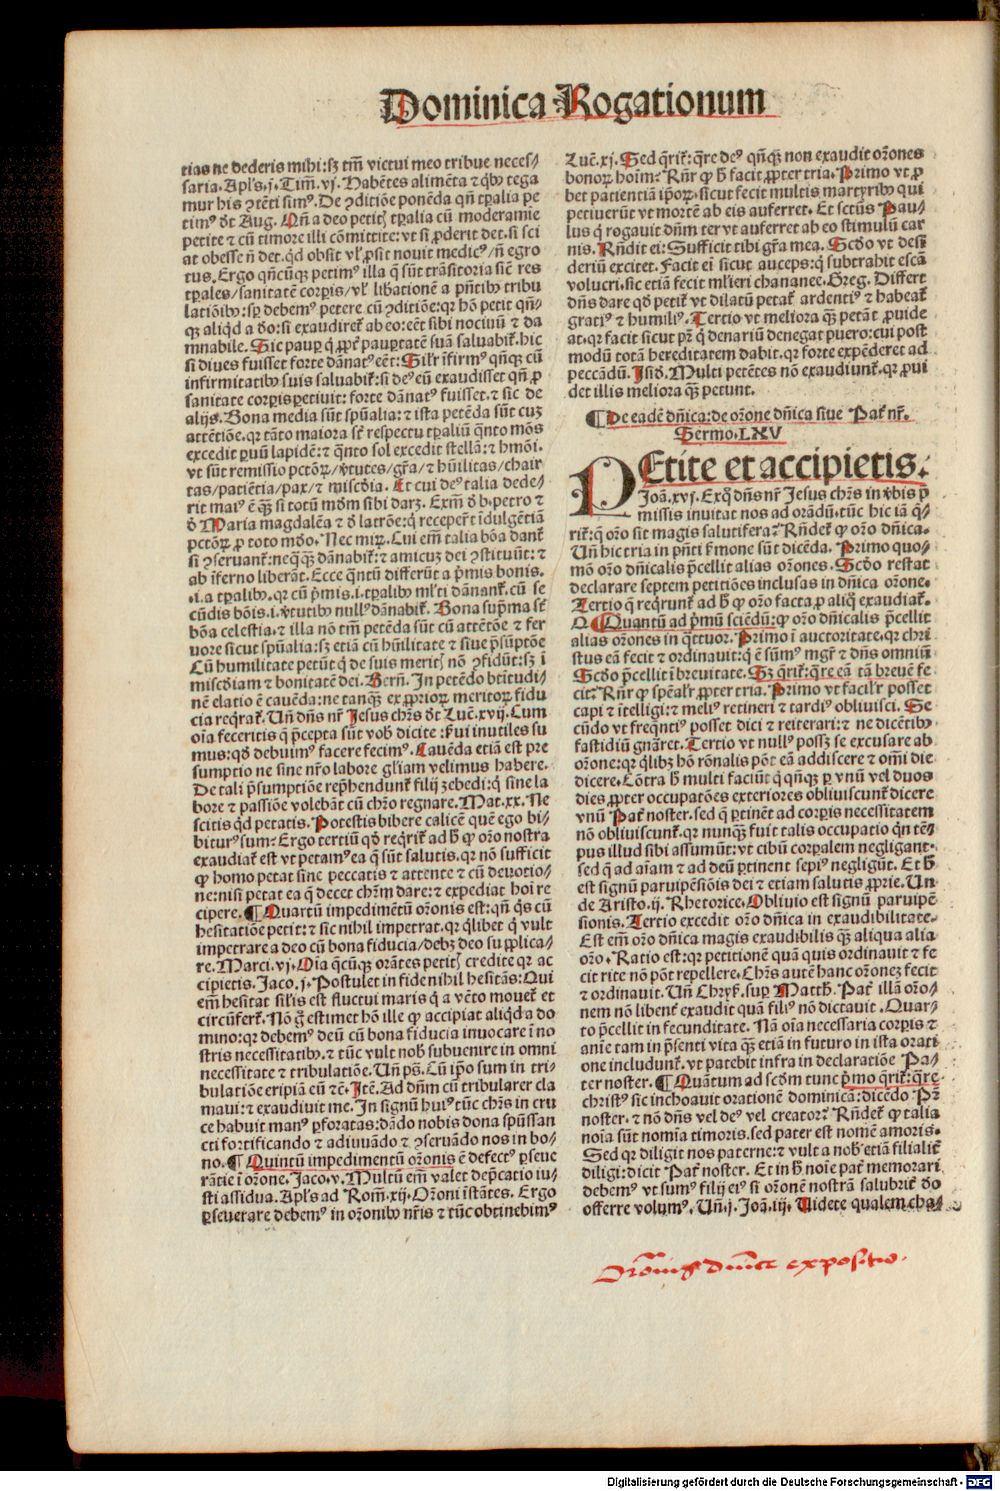 Dominica Rogationum
tias ne dederis mihi: sꝫ tm̄ victui meo tribue neces/
saria. Apl's.j. Tim̄.vj. Habētes alimēta ⁊ qͥbꝰ tega
mur his ꝯtēti simꝰ. De ꝯditiōe ponēda qn̄ tꝑalia pe
timꝰ dt̄ Aug. Qn̄ a deo petitꝭ tꝑalia cū moderamie
petite ⁊ cū timore illi cōmittite: vt si ꝓderit det. si sci
at obesse ñ det. qd obsit vl' ꝓsit novit medicꝰ / ñ egro
tus. Ergo qn̄cūqꝫ petimꝰ illa q̄ sūt trāsitoria siē res
tꝑales / sanitatē corꝑis / vl' libationē a pñtibꝰ tribu
latiōibꝰ: sꝑ debemꝰ petere cū ꝯditiōe: qꝛ hō petit qn̄/
qꝫ aliqͥd a dō: si exaudiret̄ ab eo: eēt sibi nociuū ⁊ da
mnabile. Sic pauꝑ q̄ ꝓpt̄ pauꝑtatē suā saluabit̄. hic
si diues fuisset forte dānatꝰ eēt: Sil'r īfirmꝰ qn̄qꝫ cū
infirmitatibꝰ suis saluabit̄: si deꝰ eū exaudisset qn̄ ꝓ
sanitate corꝑis ꝑetiuit: forte dānatꝰ fuisset. ⁊ sic de
alijs. Bona media sūt spūalia: ⁊ ista petēda sūt cuꝫ
attētiōe. qꝛ tāto maiora st̄ respectu tꝑaliū qͣnto mōs
excedit ꝑuū lapidē: ⁊ qͣnto sol excedit stellā: ⁊ hmōi.
vt sūt remissio pctōꝝ / v̄tutes / gr̄a / ⁊ hūilitas / chari
tas / patiētia / pax / ⁊ miscḋia. Et cui deꝰ talia dede/
rit maiꝰ ē qꝫ si totū mḋm sibi daꝫ. Exm̄ ḋ b. petro ⁊
ḋ Maria magdalēa ⁊ ḋ latrōe: q̄ receper̄t īdulgētiā
pctōꝝ ꝓ toto mḋo. Nec miꝝ. Cui em̄ talia bōa dant̄
si ꝯseruant̄: neqͣqꝫ dānabit̄: ⁊ amicuꝫ dei ꝯstituūt: ⁊
ab īferno liberāt. Ecce qͣntū differūt a p̄mis bonis.
.i. a tꝑalibꝰ. qꝛ cū p̄mis .i. tꝑalibꝰ ml'ti dānant̄. cū se
cūdis bōis .i. v̄tutibꝰ nullꝰ dānabit̄. Bona sup̄ma st̄
bōa celestia. ⁊ illa nō tm̄ petēda sūt cū attētōe ⁊ fer
uore sicut spūalia: sꝫ etiā cū hūilitate ⁊ siue p̄sūptōe
Cū humilitate petūt q̄ de suis meritꝭ nō ꝯfidūt: sꝫ ī
miscḋiam ⁊ bonitatē dei. Bern̄. In petēdo bt̄itudi/
nē elatio ē cauēda: ne tanqͣꝫ ex ꝓprioꝝ meritoꝝ fidu
cia reqͥrat̄. Vn̄ dn̄s nr̄ Jesus chr̄s dt̄ Luc̄.xvij. Cum
oīa feceritis q̄ p̄cepta sūt vob̄ dicite: Fui inutiles su
mus: qḋ debuimꝰ facere fecimꝰ. Cauēda etiā est pre
sumptio ne sine nr̄o labore gl'iam velimus habere.
De tali p̄sumptiōe rep̄hendunt̄ filij zebedi: q̄ sine la
bore ⁊ passiōe volebāt cū chr̄o regnare. Mat.xx. Ne
scitis qͥd petatis. Potestis bibere calicē quē ego bi/
biturꝰ sum: Ergo tertiū qḋ reqͥrit̄ ad h̄ ꝙ or̄o nostra
exaudiat̄ est vt petamꝰ ea q̄ sūt salutis. qꝛ nō sufficit
ꝙ homo petat sine peccatis ⁊ attente ⁊ cū deuotio/
ne: nisi petat ea q̄ decet chr̄m dare: ⁊ expediat hoī re
cipere. ¶ Quartū impedimētū or̄onis est: qn̄ qͥs cū
hesitatiōe petit: ⁊ sic nihil impetrat. qꝛ qͥlibet q̄ vult
impetrare a deo cū bona fiducia / debꝫ deo su ꝓlica/
re. Marci.vj. Oīa qͣcūqꝫ orātes petitꝭ credite qꝛ ac
cipietis. Jaco.j. Postulet in fide nihil hesitās: Qui
em̄ hesitat sil'is est fluctui maris q̄ a vēto mouet̄ et
circūfert̄. Nō ḡ estimet hō ille ꝙ accipiat aliqͥd a do
mino: qꝛ debemꝰ deū cū bona fiducia inuocare ī no
stris necessitatibꝰ. ⁊ tūc vult nob̄ subuenire in omni
necessitate ⁊ tribulatiōe. Vn̄ pꝰ. Cū ip̄o sum in tri/
bulatiōe eripiā eū ⁊c̄. Jtē. Ad dn̄m cū tribularer cla
maui: ⁊ exaudiuit me. In signū huiꝰ tūc chr̄s in cru
ce habuit manꝰ ꝑforatas: dādo nobis dona spūssan
cti fortificando ⁊ adiuuādo ⁊ ꝯseruādo nos in bo/
no. ¶ Quintū impedimentū or̄onis ē defectꝰ ꝑseue
rātie ī or̄one. Jaco.v. Multū em̄ valet dep̄catio iu/
sti assidua. Apl's ad Rom̄.xij. Or̄oni īstātes. Ergo
ꝑseuerare debemꝰ in or̄onibꝰ nr̄is ⁊ tūc obtinebimꝰ
Luc̄.xj. Sed q̄rit̄: q̄re deꝰ qn̄qꝫ non exaudit or̄ones
bonoꝝ hoīm? Rn̄r ꝙ h̄ facit ꝓpter tria. Primo vt ꝓ
bet patientiā ip̄oꝝ. sicut fecit multis martyribꝰ qui
petiuerūt vt mortē ab eis auferret. Et sctūs Pau/
lus q̄ rogauit dn̄m ter vt auferret ab eo stimulū car
nis. Rn̄dit ei: Sufficit tibi gr̄a mea. Scḋo vt desi
deriū excitet. Facit ei sicut auceps: q̄ subtrahit escā
volucri. sic etiā fecit ml'ieri chananee. Greg. Differt
dn̄s dare qḋ petit̄ vt dilatū petat̄ ardentiꝰ ⁊ habeat̄
gratiꝰ ⁊ humiliꝰ. Tertio vt meliora qꝫ petāt̄ ꝓuide
at. qꝛ facit sicut pr̄ q̄ denariū denegat puero: cui post
modū totā hereditatem dabit. qꝛ forte expēderet ad
peccādū. Jsiḋ. Multi petētes nō exaudiunt̄. qꝛ ꝓui
det illis meliora qꝫ petunt.
¶ De eadē dn̄ica: de or̄one dn̄ica siue Pat̄ nr̄.
Sermo. LXV
PEtite et accipietis.
Joā.xvj. Exqͦ dn̄s nr̄ Jesus chr̄s in v̄bis p̄
missis inuitat nos ad orādū. tūc hic iā q̄/
rit̄: q̄ or̄o sit magis salutifera? Rn̄det̄ ꝙ or̄o dn̄ica.
Vn̄ hic tria in pn̄ti ẜmone sūt dicēda. Primo quo/
mō or̄o dn̄icalis p̄cellit alias or̄ones. Scḋo restat
declarare septem petitiōes inclusas in dn̄ica or̄one.
Tertio q̄ reqͥrunt̄ ad h̄ ꝙ or̄o facta ꝓ aliqͦ exaudiat̄.
¶ Quantū ad p̄mū sciēdū: ꝙ or̄o dn̄icalis p̄cellit
alias or̄ones in qͣttuor. Primo ī auctoritate. qꝛ chri
stus eā fecit ⁊ ordinauit: q̄ ē sūmꝰ mgr̄ ⁊ dn̄s omniū
Scḋo p̄cellit ī breuitate. Sꝫ q̄rit̄: q̄re eā tā breuē fe
cit: Rn̄r ꝙ spēal'r ꝓpter tria. Primo vt facil'r posset
capi ⁊ ītelligi: ⁊ meliꝰ retineri ⁊ tardiꝰ obliuisci. Se
cūdo vt freqn̄tiꝰ posset dici ⁊ reiterari: ⁊ ne dicētibꝰ
fastidiū gn̄aret. Tertio vt nullꝰ possꝫ se excusare ab
or̄one: qꝛ qͥlibꝫ hō rōnalis pōt eā addiscere ⁊ om̄i die
dicere. Cōtra h̄ multi faciūt q̄ qn̄qꝫ ꝑ vnū vel duos
dies ꝓpter occupatōes exteriores obliuiscunt̄ dicere
vnū Pat̄ noster. sed q̄ ꝑtinēt ad corꝑis necessitatem
nō obliuiscunt̄. qꝛ nunqꝫ fuit talis occupatio qn̄ tē/
pus illud sibi assumūt: vt cibū corꝑalem negligant.
sed q̄ ad aīam ⁊ ad deū ꝑtinent sepiꝰ negligūt. Et h̄
est signū paruipēsiōis dei ⁊ etiam salutis ꝓprie. Un
de Aristo.ij. Rhetorice. Obliuio est signū paruipē
sionis. Tertio excedit or̄o dn̄ica in exaudibilitate.
Est em̄ or̄o dn̄ica magis exaudibilis qꝫ aliqua alia
or̄o. Ratio est: qꝛ petitionē quā quis ordinauit ⁊ fe
cit rite nō pōt repellere. Chr̄s autē hanc or̄oneꝫ fecit
⁊ ordinauit. Vn̄ Chryẜ. suꝑ Matth̄. Pat̄ illā or̄o/
nem nō libent̄ exaudit quā filiꝰ nō dictauit. Quar/
to p̄cellit in fecunditate. Nā oīa necessaria corꝑis ⁊
anīe tam in p̄senti vita qꝫ etiā in futuro in ista orati
one includunt̄. vt patebit infra in declaratiōe Pa/
ter noster. ¶ Quātum ad scḋm tunc p̄mo q̄rit̄: q̄re
christꝰ sic inchoauit orationē dominicā: dicēdo Pr̄
noster. ⁊ nō dn̄s vel deꝰ vel creator? Rn̄det̄ ꝙ talia
noīa sūt nomīa timoris. sed pater est nomē amoris.
Sed qꝛ diligit nos paterne: ⁊ vult a nob̄ etiā filialit̄
diligi: dicit Pat̄ noster. Et in h̄ noīe pat̄ memorari
debemꝰ vt sumꝰ filij eiꝰ si or̄onē nostrā salubrit̄ dō
offerre volumꝰ. Vn̄.j. Joā.iij. Uidete qualem cha/
Or̄onis dn̄ice expositio.
Digitalisierung gefördert durch die Deutsche Forschungsgemeinschaft - DFG